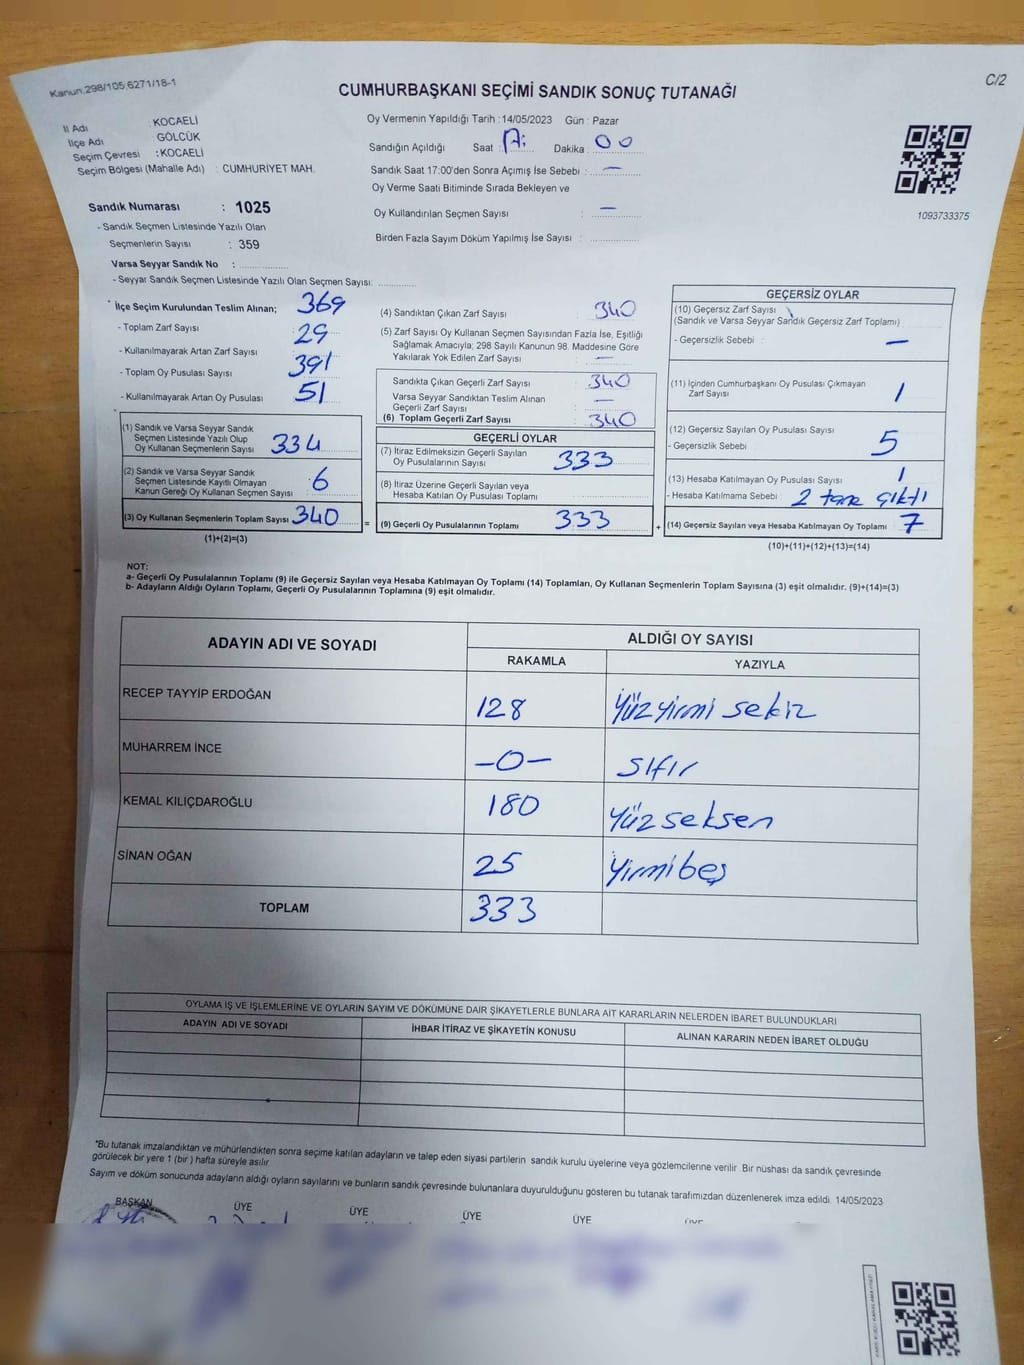 Kanun.298/105,6271/18-1
C/2
CUMHURBAŞKANI SEÇİMİ SANDIK SONUÇ TUTANAĞI
İl Adı : KOCAELİ
İlçe Adı GÖLCÜK
Seçim Çevresi : KOCAELİ
Seçim Bölgesi (Mahalle Adı) : CUMHURİYET MAH.
Oy Vermenin Yapıldığı Tarih :14/05/2023 Gün : Pazar
Sandığın Açıldığı Saat : Dakika : 00
Sandık Saat 17:00'den Sonra Açımış İse Sebebi : —
Oy Verme Saati Bitiminde Sırada Bekleyen ve
Oy Kullandırılan Seçmen Sayısı : —
Birden Fazla Sayım Döküm Yapılmış İse Sayısı :
1093733375
Sandık Numarası : 1025
- Sandık Seçmen Listesinde Yazılı Olan
Seçmenlerin Sayısı : 359
Varsa Seyyar Sandık No :
- Seyyar Sandık Seçmen Listesinde Yazılı Olan Seçmen Sayısı:
İlçe Seçim Kurulundan Teslim Alınan; 369
- Toplam Zarf Sayısı 29
- Kullanılmayarak Artan Zarf Sayısı 391
- Toplam Oy Pusulası Sayısı 51
- Kullanılmayarak Artan Oy Pusulası
(1) Sandık ve Varsa Seyyar Sandık
Seçmen Listesinde Yazılı Olup
Oy Kullanan Seçmenlerin Sayısı 334
(2) Sandık ve Varsa Seyyar Sandık
Seçmen Listesinde Kayıtlı Olmayan
Kanun Gereği Oy Kullanan Seçmen Sayısı 6
(3) Oy Kullanan Seçmenlerin Toplam Sayısı 340
(1)+(2)=(3)
=
(4) Sandıktan Çıkan Zarf Sayısı 340
(5) Zarf Sayısı Oy Kullanan Seçmen Sayısından Fazla İse, Eşitliği
Sağlamak Amacıyla; 298 Sayılı Kanunun 98. Maddesine Göre
Yakılarak Yok Edilen Zarf Sayısı : —
Sandıkta Çıkan Geçerli Zarf Sayısı : 340
Varsa Seyyar Sandıktan Teslim Alınan
Geçerli Zarf Sayısı : —
(6) Toplam Geçerli Zarf Sayısı : 340
GEÇERLİ OYLAR
(7) İtiraz Edilmeksizin Geçerli Sayılan
Oy Pusulalarının Sayısı 333
(8) İtiraz Üzerine Geçerli Sayılan veya
Hesaba Katılan Oy Pusulası Toplamı
(9) Geçerli Oy Pusulalarının Toplamı 333
+
GEÇERSİZ OYLAR
(10) Geçersiz Zarf Sayısı
(Sandık ve Varsa Seyyar Sandık Geçersiz Zarf Toplamı)
- Geçersizlik Sebebi : —
(11) İçinden Cumhurbaşkanı Oy Pusulası Çıkmayan
Zarf Sayısı 1
(12) Geçersiz Sayılan Oy Pusulası Sayısı 5
- Geçersizlik Sebebi
(13) Hesaba Katılmayan Oy Pusulası Sayısı 1
- Hesaba Katılmama Sebebi : 2 tane çıktı
(14) Geçersiz Sayılan veya Hesaba Katılmayan Oy Toplamı 7
(10)+(11)+(12)+(13)=(14)
NOT:
a- Geçerli Oy Pusulalarının Toplamı (9) ile Geçersiz Sayılan veya Hesaba Katılmayan Oy Toplamı (14) Toplamları, Oy Kullanan Seçmenlerin Toplam Sayısına (3) eşit olmalıdır. (9)+(14)=(3)
b- Adayların Aldığı Oyların Toplamı, Geçerli Oy Pusulalarının Toplamına (9) eşit olmalıdır.
ADAYIN ADI VE SOYADI ALDIĞI OY SAYISI
RAKAMLA YAZIYLA
RECEP TAYYİP ERDOĞAN 128 Yüzyirmi sekiz
MUHARREM İNCE -0- sıfır
KEMAL KILIÇDAROĞLU 180 Yüz seksen
SİNAN OĞAN 25 Yirmibeş
TOPLAM 333
OYLAMA İŞ VE İŞLEMLERİNE VE OYLARIN SAYIM VE DÖKÜMÜNE DAİR ŞİKAYETLERLE BUNLARA AİT KARARLARIN NELERDEN İBARET BULUNDUKLARI
ADAYIN ADI VE SOYADI İHBAR İTİRAZ VE ŞİKAYETİN KONUSU ALINAN KARARIN NEDEN İBARET OLDUĞU
*Bu tutanak imzalandıktan ve mühürlendikten sonra seçime katılan adayların ve talep eden siyasi partilerin sandık kurulu üyelerine veya gözlemcilerine verilir. Bir nüshası da sandık çevresinde
görülecek bir yere 1 (bir ) hafta süreyle asılır
Sayım ve döküm sonucunda adayların aldığı oyların sayılarını ve bunların sandık çevresinde bulunanlara duyurulduğunu gösteren bu tutanak tarafımızdan düzenlenerek imza edildi. 14/05/2023
BAŞKAN ÜYE ÜYE ÜYE ÜYE ÜYE